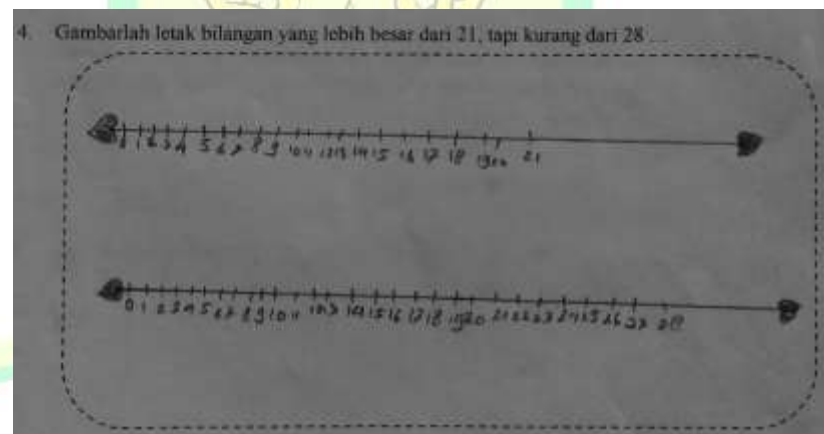 4. Gambarlah letak bilangan yang lebih besar dari 21, tapi kurang dari 28 ...
0 1 2 3 4 5 6 7 8 9 10 11 12 13 14 15 16 17 18 19 20 21
0 1 2 3 4 5 6 7 8 9 10 11 12 13 14 15 16 17 18 19 20 21 22 23 24 25 26 27 28